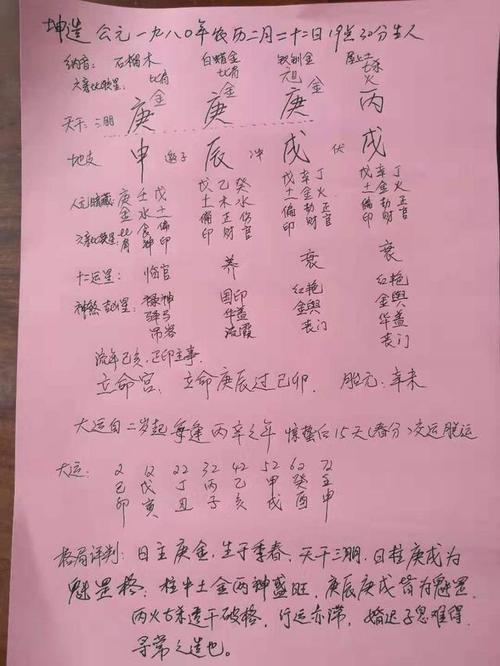 坤造 公元一九八〇年农历二月二十二日19点30分生人
纳音: 石榴木 白蜡金 钗钏金 屋上土
六亲比较星: 比肩 比肩 元 七杀
天干三朋 庚金 庚金 庚金 丙火
地支 申 子 辰 冲 戌 伏 戌
人元暗藏 庚壬戊 戊乙癸 戊辛丁 戊辛丁
金水土 土木水 土金火 土金火
六亲比较星: 比肩 食神 偏印 偏印 正财 伤官 偏印 劫财 正官 偏印 劫财 正官
十二运星: 临官 养 衰 衰
神煞吉星: 禄神 国印 红艳 红艳
驿马 华盖 金舆 金舆
吊客 流霞 丧门 华盖
丧门
流年己亥,正印主事.
立命宫: 立命庚辰过己卯. 胎元: 辛未
大运自二岁起每逢丙辛之年 惊蛰后15天(春分)交运脱运
大运: 2 12 22 32 42 52 62 72
己 戊 丁 丙 乙 甲 癸 壬
卯 寅 丑 子 亥 戌 酉 申
格局评判: 日主庚金,生于季春,天干三朋,日柱庚戌为
魁罡格,柱中土金两神盛旺,庚辰庚戌皆为魁罡,
丙火七杀透干破格,行运亦滞,婚迟子息难得,
寻常之造也。